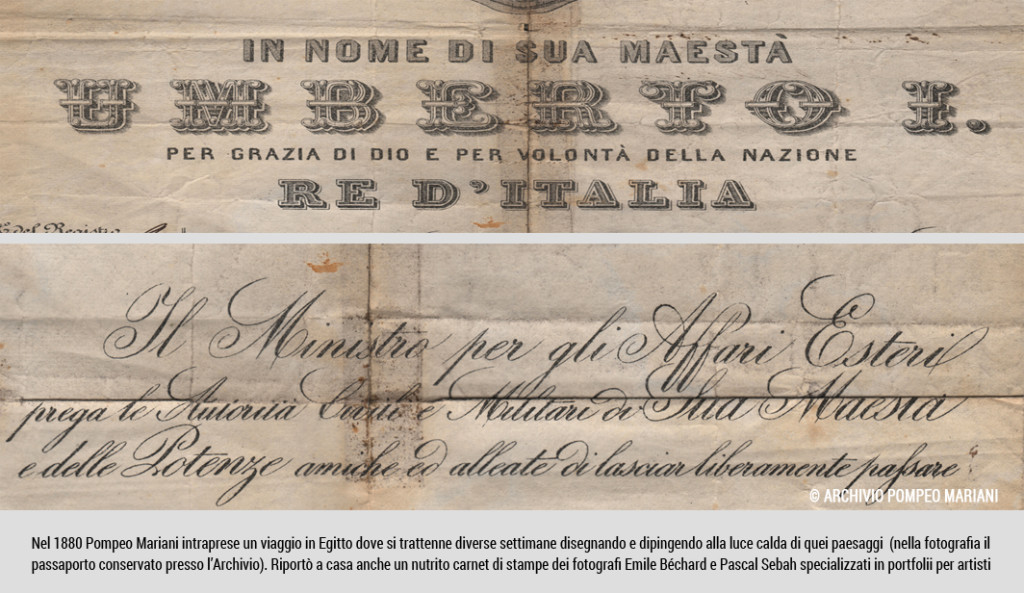 IN NOME DI SUA MAESTÀ
UMBERTO I.
PER GRAZIA DI DIO E PER VOLONTÀ DELLA NAZIONE
RE D'ITALIA
del Registro
Il Ministro per gli Affari Esteri
prega le Autorità Civili e Militari di Sua Maestà
e delle Potenze amiche ed alleate di lasciar liberamente passare
© ARCHIVIO POMPEO MARIANI
Nel 1880 Pompeo Mariani intraprese un viaggio in Egitto dove si trattenne diverse settimane disegnando e dipingendo alla luce calda di quei paesaggi (nella fotografia il
passaporto conservato presso l'Archivio). Riportò a casa anche un nutrito carnet di stampe dei fotografi Emile Béchard e Pascal Sebah specializzati in portfolii per artisti